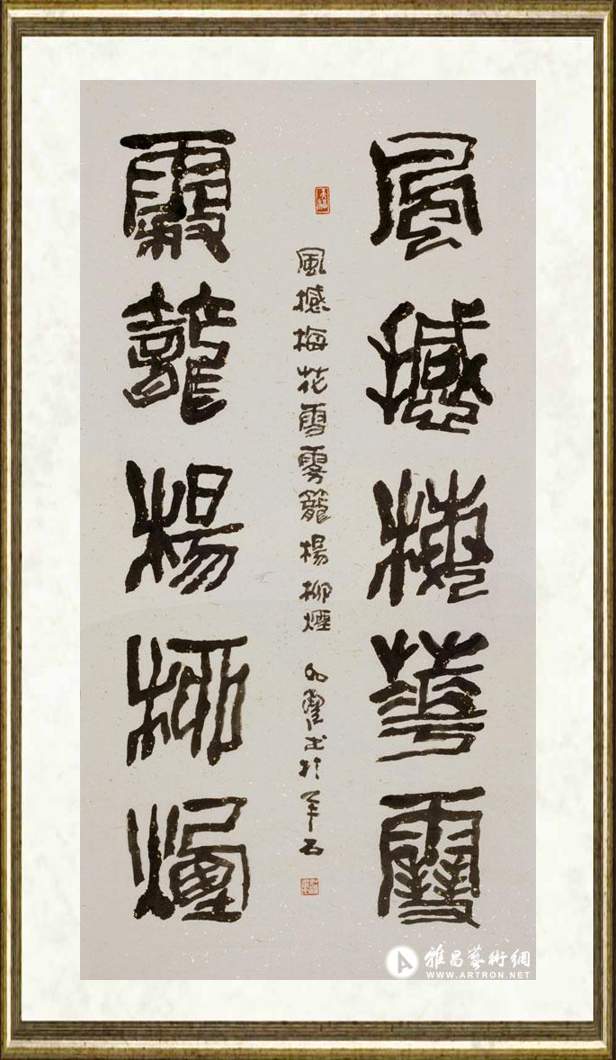 風撼梅華雪
風撼梅花雪霧籠楊柳煙
書於羊石
霧籠楊柳煙
雅昌藝術網
WWW.ARTRON.NET